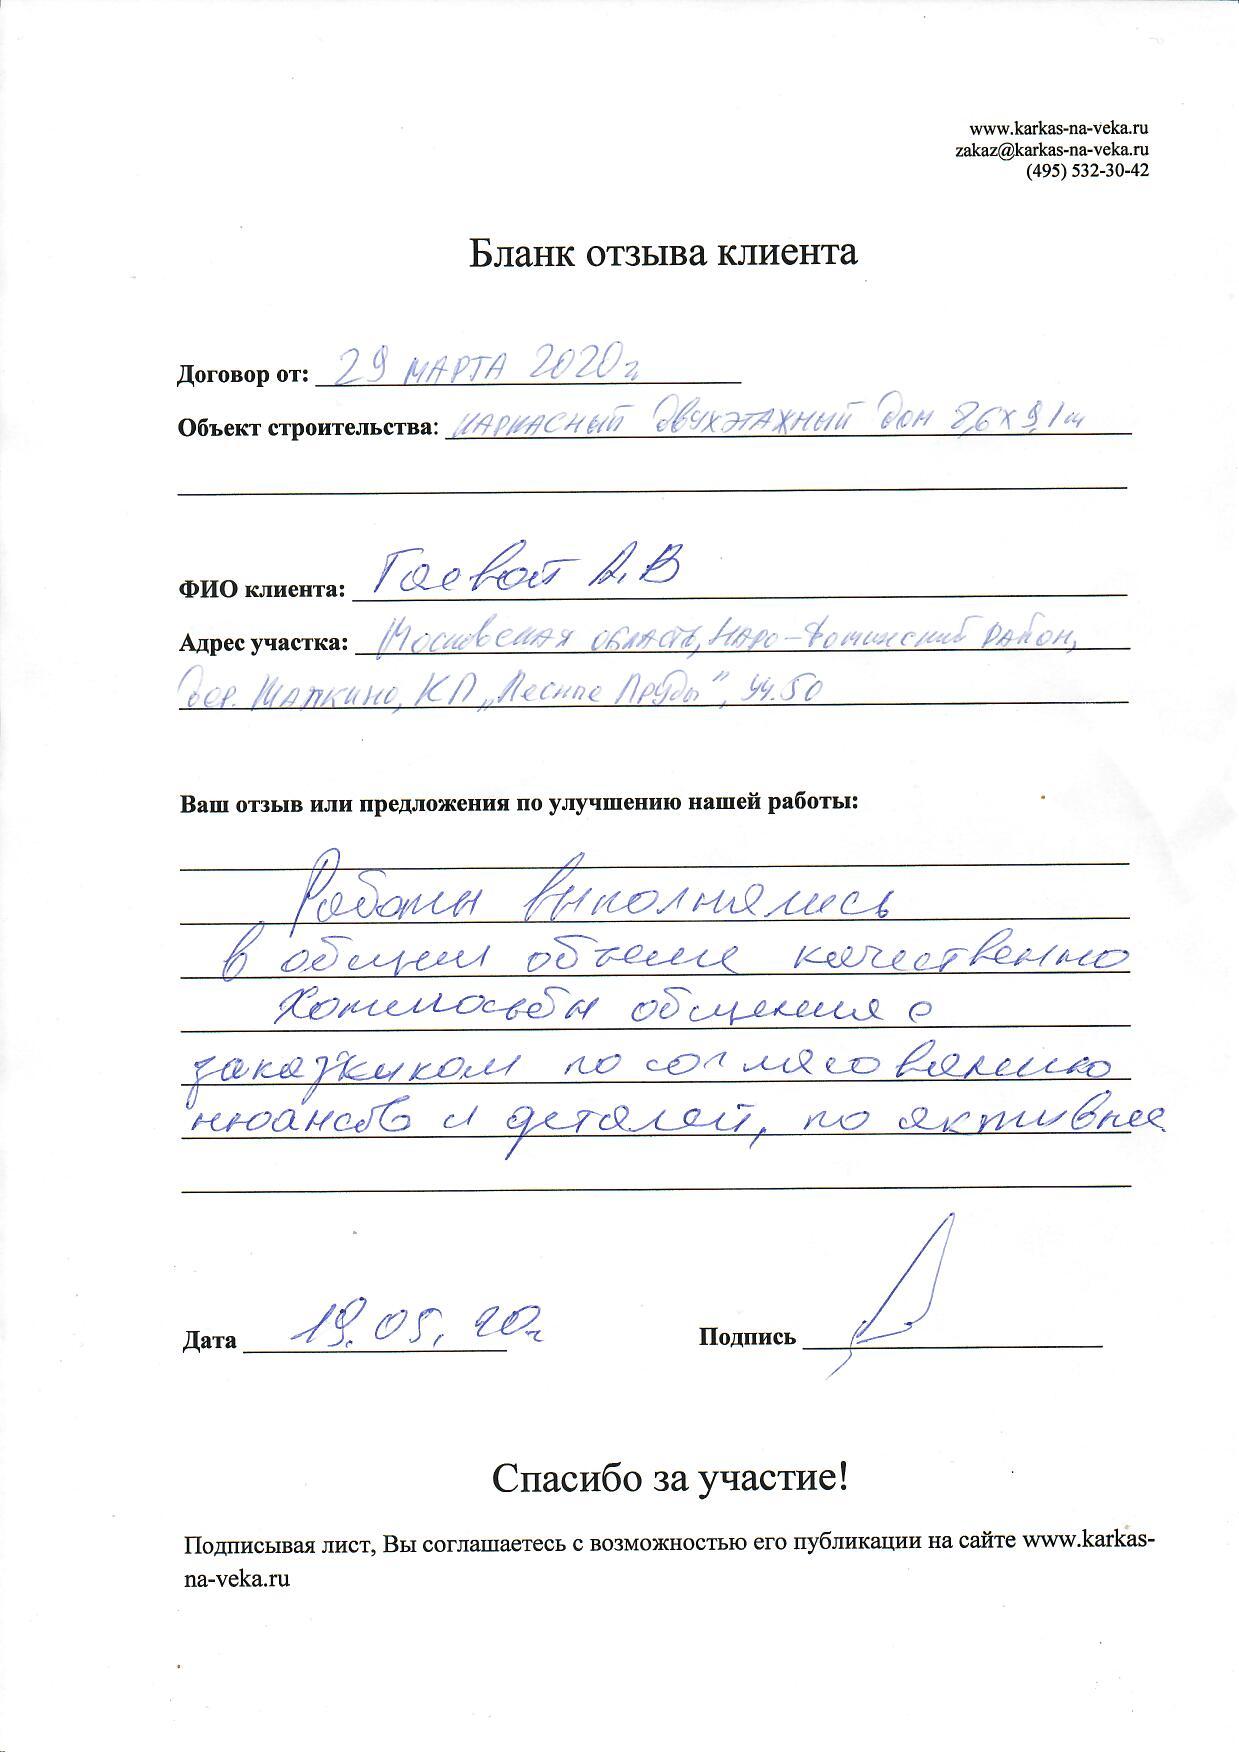 www.karkas-na-veka.ru
zakaz@karkas-na-veka.ru
(495) 532-30-42
Бланк отзыва клиента
Договор от: 29 марта 2020 г.
Объект строительства: каркасный двухэтажный дом 8,6х9,1м
ФИО клиента: Гаевой А.В
Адрес участка: Московская область, Наро-Фоминский район,
дер. Шапкино, КП „Лесные Пруды”, уч.50
Ваш отзыв или предложения по улучшению нашей работы:
Работы выполнялись
в общем объеме качественно
Хотелось бы общения с
заказчиком по согласованию
нюансов и деталей, по активнее.
Дата 19.05.20г
Подпись
Спасибо за участие!
Подписывая лист, Вы соглашаетесь с возможностью его публикации на сайте www.karkas-
na-veka.ru